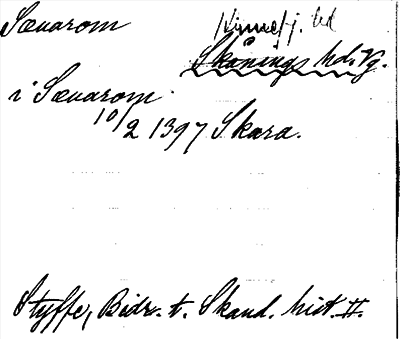 Sævarom
Kinnefj. hd
Skånings hd. Vg.
i Sævarom
10/2 1397 Skara.
Styffe, Bidr. t. Skand. hist. II.